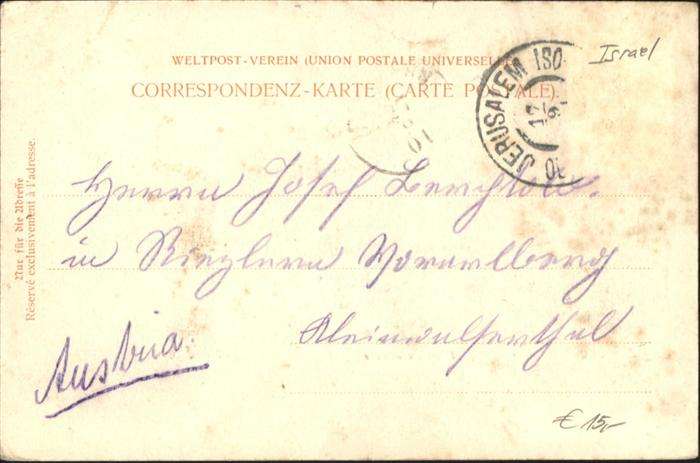 Israel
WELTPOST-VEREIN (UNION POSTALE UNIVERSELLE)
CORRESPONDENZ-KARTE (CARTE POSTALE).
JERUSALEM
Nur für die Adresse
Réservé exclusivement à l'adresse.
Herrn Josef
in Rieglern Vorarlberg
Kleinwalserthal
Austria
€ 15,-